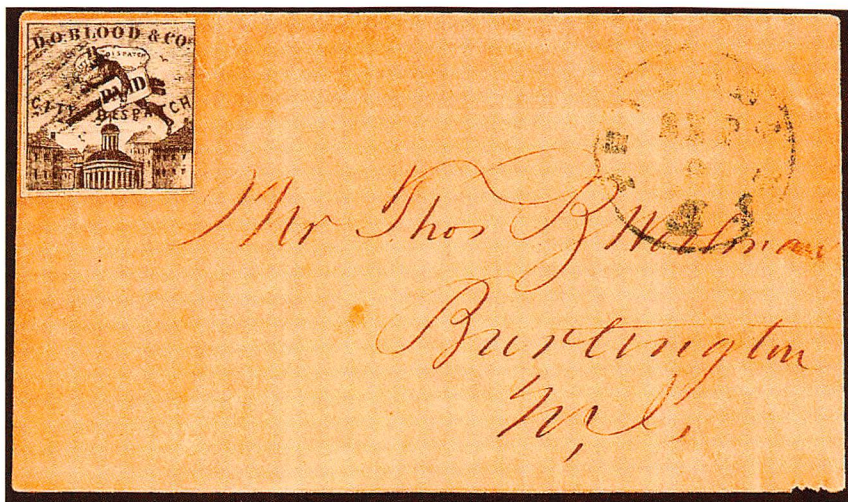 D.O. BLOOD & CO
DISPATCH
PAID
CITY DESPATCH
SEP
Mr Thos B
Burlington
N, J,